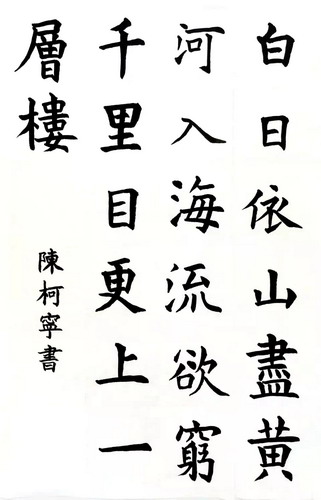 白日依山盡黃
河入海流欲窮
千里目更上一
層樓
陳柯寧書